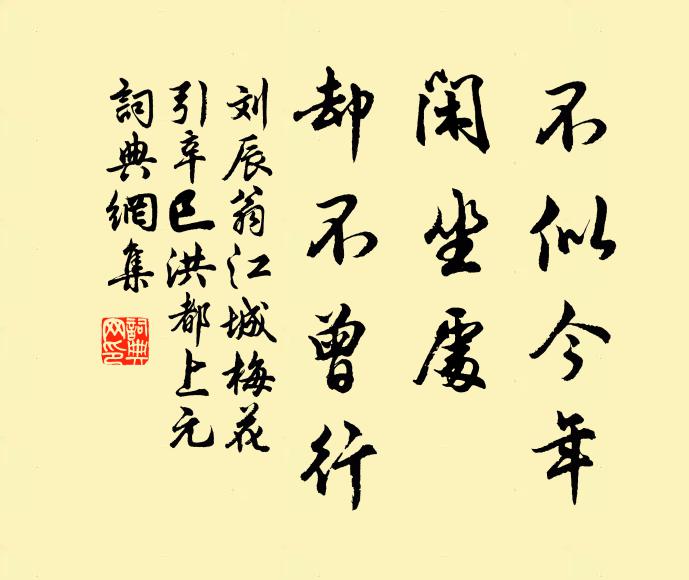 不似今年
闲坐處
却不曾行
刘辰翁江城梅花
引辛巳洪都上元
詞典網集
詞典網印